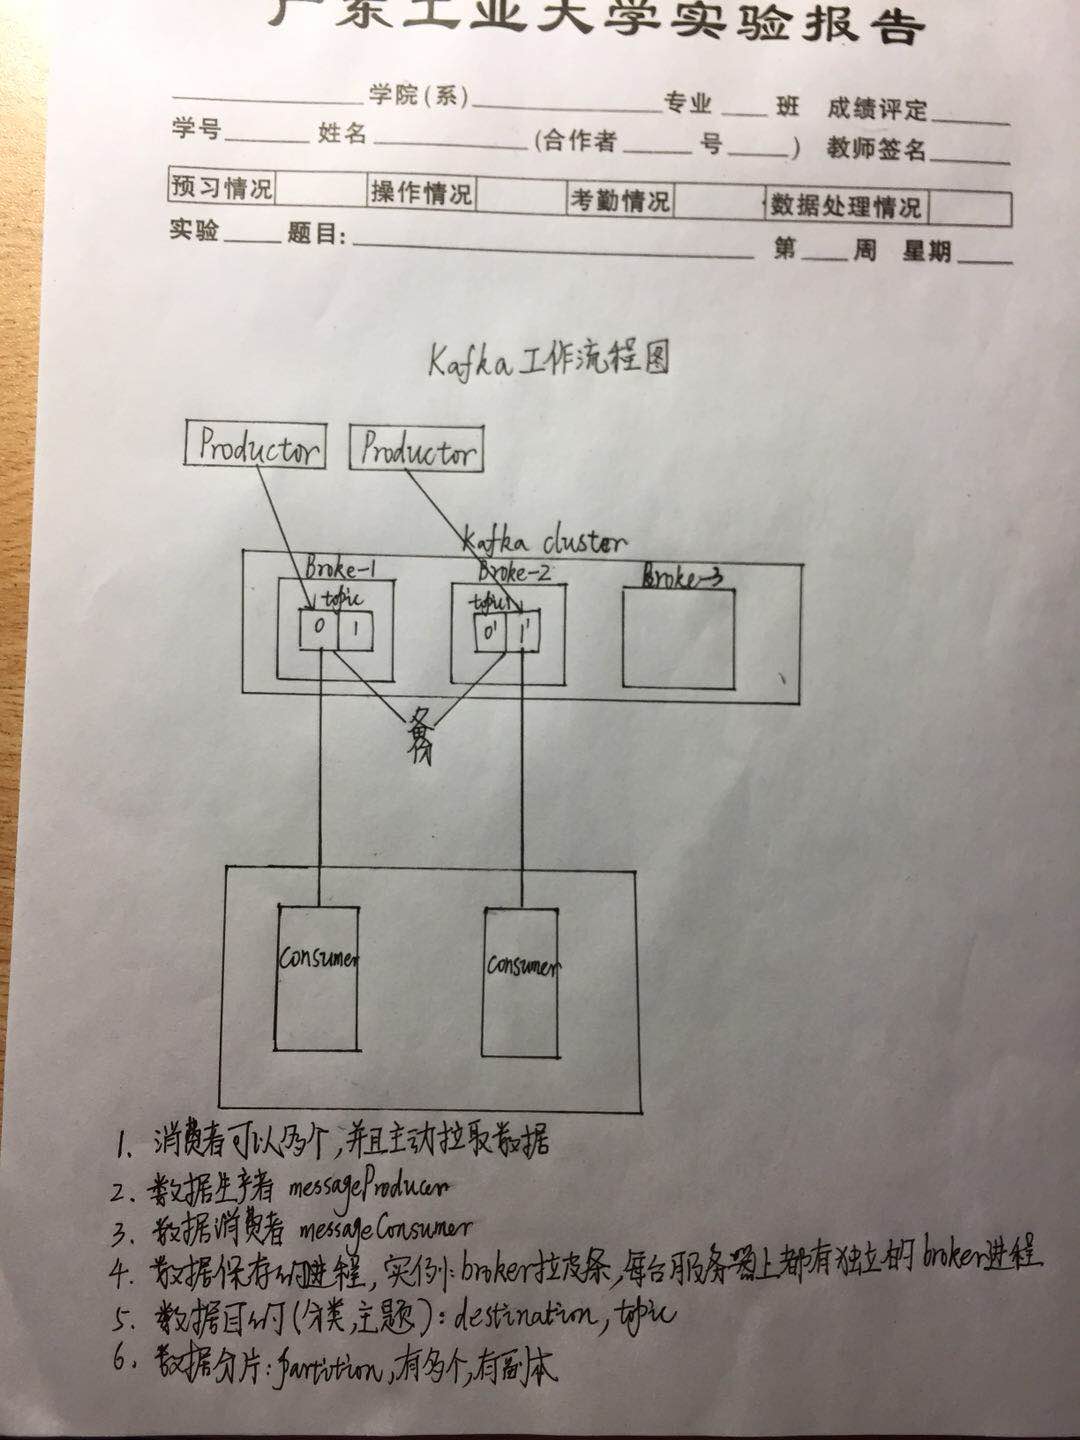 广东工业大学实验报告
学院(系) 专业 班 成绩评定
学号 姓名 (合作者 号 ) 教师签名
预习情况 操作情况 考勤情况 数据处理情况
实验 题目: 第 周 星期
Kafka工作流程图
Productor Productor
Kafka cluster
Broke-1 Broke-2 Broke-3
topic topic
0 1 0' 1'
备份
Consumer Consumer
1. 消费者可以多个,并且主动拉取数据
2. 数据生产者 messageProducer
3. 数据消费者 messageConsumer
4. 数据保存的进程, 实例: broker拉皮条, 每台服务器上都有独立的broker进程
5. 数据目的(分类,主题): destination, topic
6. 数据分片: partition, 有多个,有副本